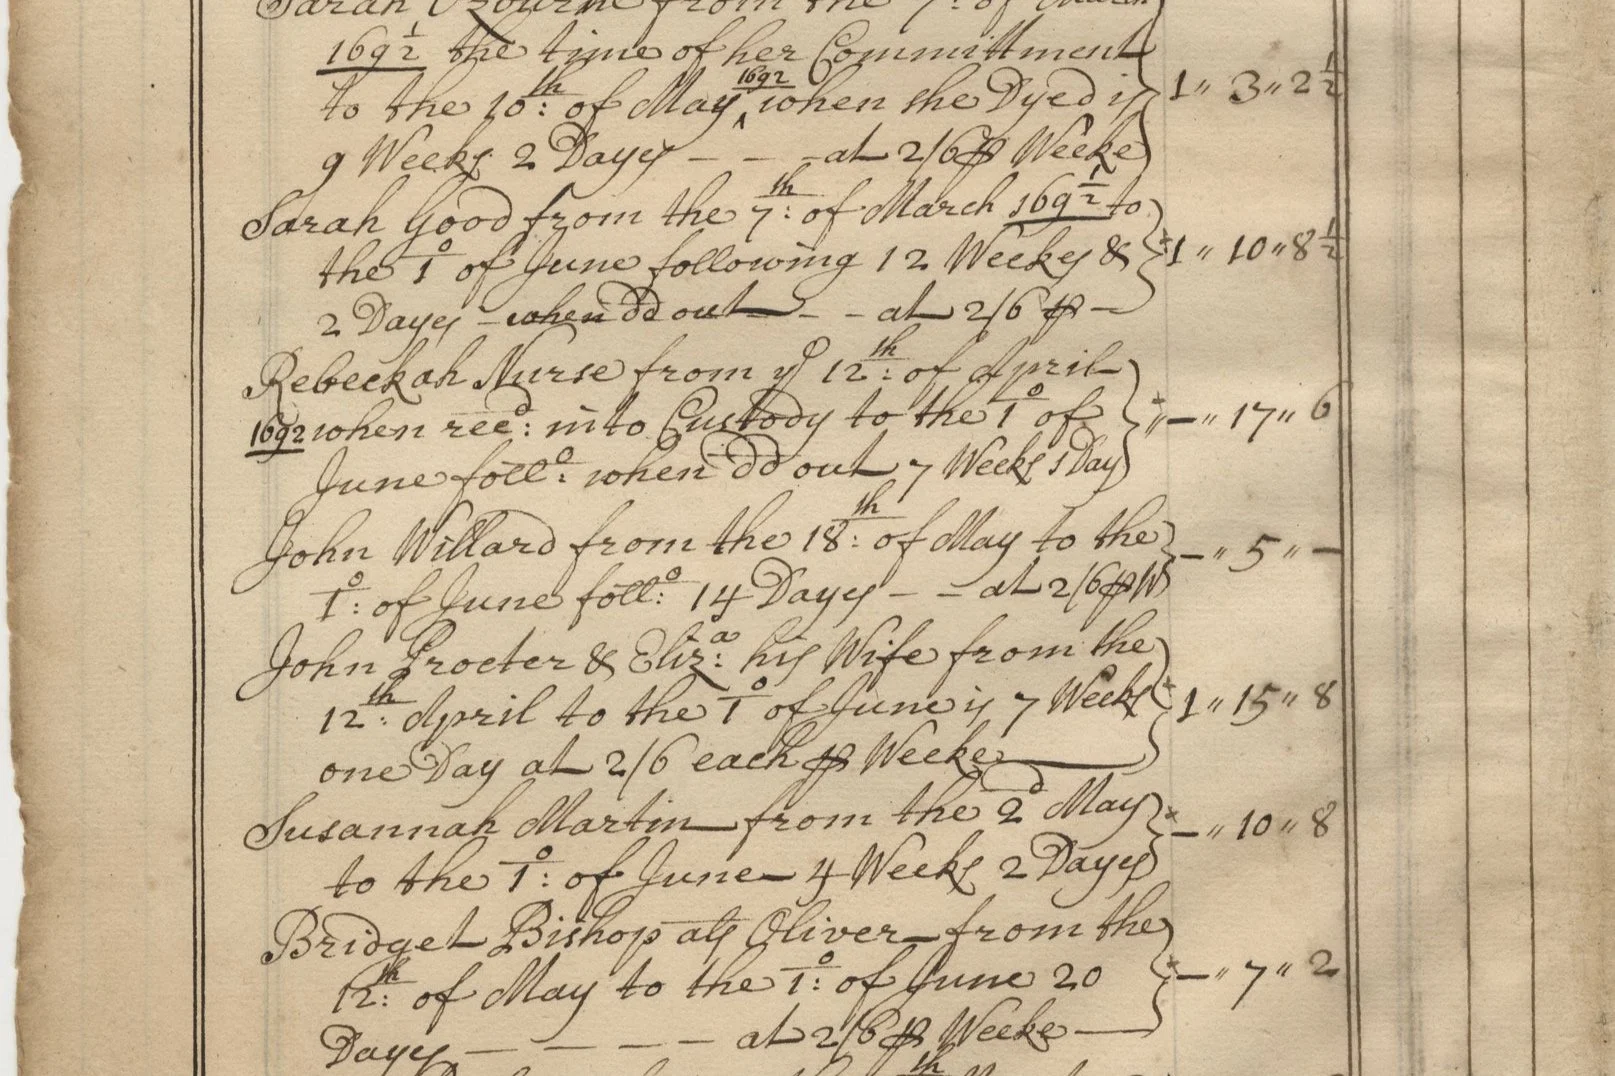 Sarah Osburne from the 7: of March
169½ the time of her Committment
to the 10th: of May 1692 when she Dyed is 1 " 3 " 2½
9 Weeks 2 Dayes - - - at 2/6 ⅌ Weeke
Sarah Good from the 7th: of March 169½ to
the 1o of June following 12 Weekes & 1 " 10 " 8½
2 Dayes - when dd out - - at 2/6 ⅌ -
Rebeckah Nurse from ye 12th: of April
1692 when recd: into Custody to the 1o of " - " 17 " 6
June follo: when dd out 7 Weeks 1 Day
John Willard from the 18th: of May to the - " 5 " -
1o: of June follo: 14 Dayes - - at 2/6 ⅌ W
John Procter & Eliza: his Wife from the
12th: April to the 1o of June is 7 Weeks 1 " 15 " 8
one Day at 2/6 each ⅌ Weeke
Susannah Martin from the 2d May - " 10 " 8
to the 1o: of June - 4 Weeks 2 Dayes
Bridget Bishop als Oliver - from the
12th: of May to the 1o: of June 20 - " 7 " 2
Dayes - - - - at 2/6 ⅌ Weeke